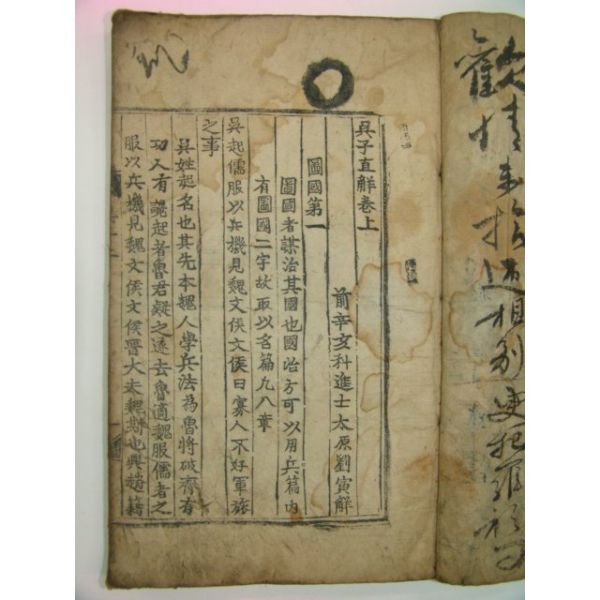 歡情未還相別更把
吳子直解卷上
前辛亥科進士太原劉寅解
圖國第一
圖國者謀治其國也國治方可以用兵篇內
有圖國二字故取以名篇凡八章
吳起儒服以兵機見魏文侯文侯曰寡人不好軍旅
之事
吳姓起名也其先本魏人學兵法為魯將破齊有
功人有讒起者魯君疑之遂去魯適魏服儒者之
服以兵機見魏文侯文侯晉大夫魏斯也與趙籍